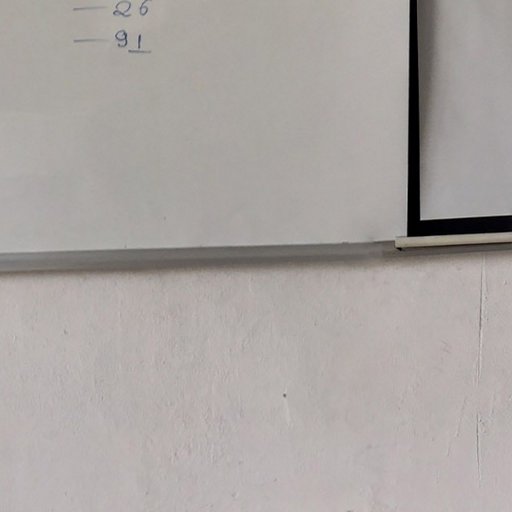 — 26
— 91